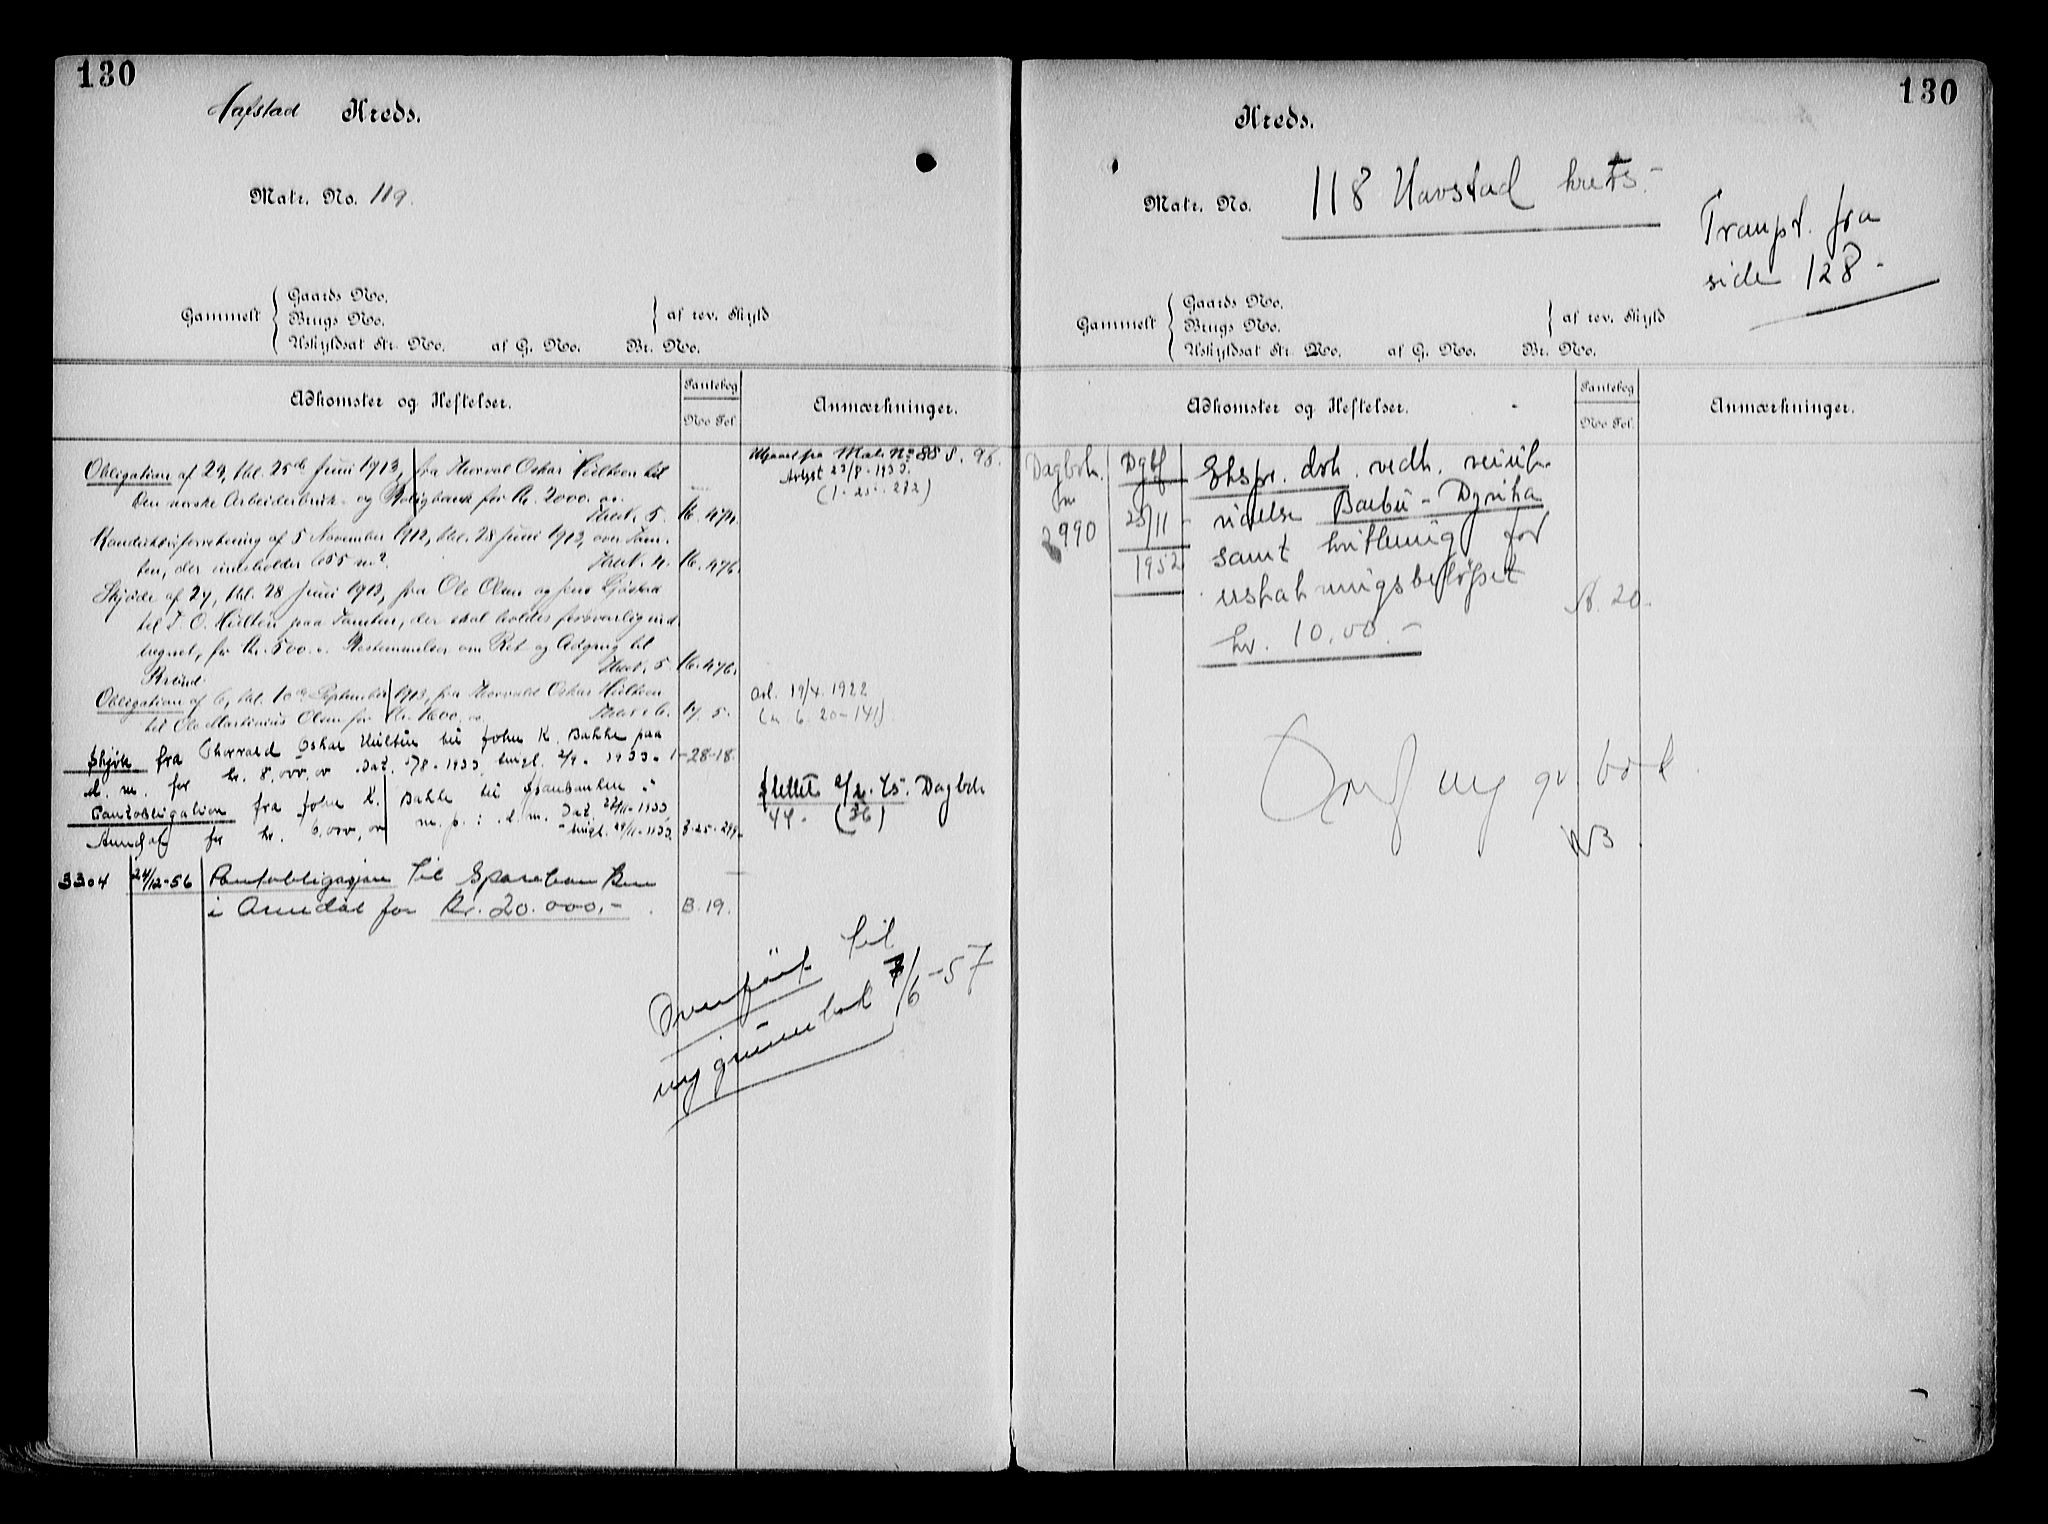 130
Hafstad Kreds.
Matr. No. 119.
Gammelt
Gaards No.
Brugs No.
Uskyldsat Str. No. af G. No. Br. No.
af rev. Skyld
Adkomster og Heftelser.
Pantebog
No Fol.
Anmærkninger.
Obligation af 24, tbl. 25de Juni 1913, fra Torval Oskar Hultēn til
Den norske Arbeiderbruk- og Boligbank for Kr. 2000.00.
Attest. 5. 16. 474.
Utgaaet fra Matr. No 88 s. 98.
Avlyst 23/8. 1933.
(1. 25. 272)
af 5 November 1912, tbl. 28 Juni 1913, over Tom-
ten, der indeholder 655 m2.
4. 16. 476.
Skjøde af 27, tbl. 28 Juni 1913, fra Ole Olsen og
til T. O. Hultēn paa Tomten, der skal holdes forsvarlig ind-
hegnet, for Kr. 500.00. Bestemmelser om Ret og Adgang til
Brønd. 5. 16. 476.
Obligation af 6, tbl. 10de September 1913, fra Thorvald Oskar Hultēn
til Ole Martinius Olsen for Kr. 1600.00. 6. 17. 5.
avl. 19/4. 1922
6. 20-141)
Skjøte fra Thorvald Oskar Hultēn til John K. Bakke paa
d. m. for kr. 8.000,00 Dat. 5/8-1933, tingl. 2/9. 1933. 1-28-18.
Pantobligation fra John K. Bakke til Sparebanken i
Arendal for kr. 6.000,00 m. p. i d. m. Dat. 22/11-1933,
tingl. 29/11-1933. 3-25-299.
Slettet 2/2. 45. Dagbok
44. (36)
3304 24/12-56 Pantobligasjon til Sparebanken
i Arendal for Kr. 20.000,- B. 19.
Overført til
ny grunnbok 7/6-57
130
Kreds.
Matr. No. 118 Havstad krets.-
Transp. fra
side 128.-
Gammelt
Gaards No.
Brugs No.
Uskyldsat Str. No. af G. No. Br. No.
af rev. Skyld
Adkomster og Heftelser.
Pantebog
No Fol.
Anmærkninger.
Dagbok
nr
2990
Dgbf
25/11-
1952
Ekspr. dok. vedk.
videlse Barbu - Dyvika
samt kvittering for
erstatningsbeløpet
kr. 10,00.-
A. 20.
Overf ny gr. bok.
NB